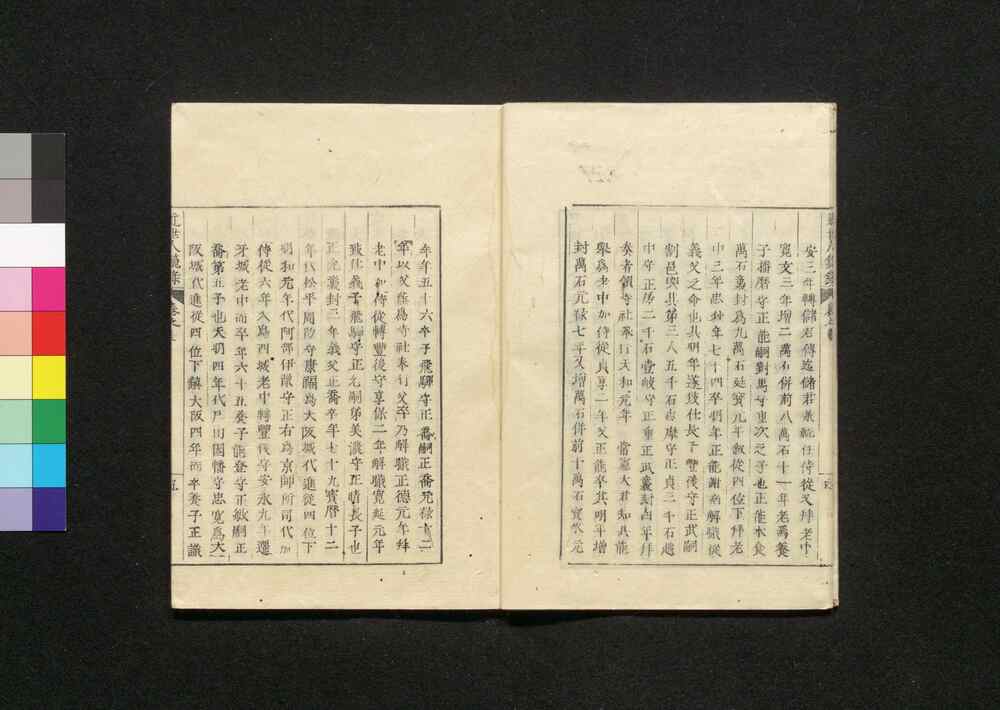 安三年轉儲君傅迄儲君承統任侍從又拜老中
寛文三年增二萬石併前八萬石十一年老焉養
子播磨守正能嗣對馬守重次之子也正能本食
萬石襲封爲九萬石延寳元年敘從四位下拜老
中三年忠秋年七十四卒明年正能謝病解職從
義父之命也其明年遂致仕長子豐後守正武嗣
割邑與其第三人五千石志摩守正貞三千石
中守正房二千石壹岐守正重正武襲封四年拜
奏者領寺社奉行天和元年 常憲大君知其能
擧爲老中加侍從貞享二年父正能卒其明年增
封萬石元禄七年又增萬石併前十萬石寳永元
年年五十六卒子飛騨守正喬嗣正喬元禄十二
年以父蔭爲寺社奉行父卒乃解職正德元年拜
老中加侍從轉豐後守享保二年解職寛延元年
致仕義子飛騨守正允嗣弟美濃守正晴長子也
正允襲封三年義父正喬卒年七十九寳曆十二
年代松平周防守康福爲大阪城代進從四位下
明和元年代阿部伊豫守正右爲京師所司代加
侍從六年入爲西城老中轉豐後守安永九年遷
牙城老中而卒年六十五養子能登守正敏嗣正
喬第五子也天明四年代戸田因幡守忠寛爲大
阪城代進從四位下鎮大阪四年而卒養子正識
近世人鏡錄
卷之
五